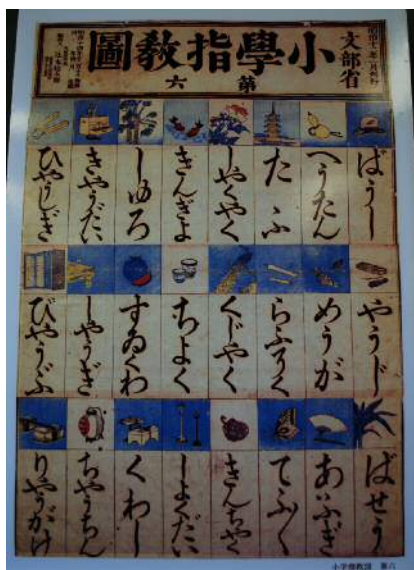 小學指教圖
第六
文部省
ばうし
へうたん
たふ
しやくやく
きんぎよ
しゆろ
きやうだい
ひやうしぎ
やうじ
めうが
らふそく
くじやく
ちよく
すゐくわ
しやうぎ
びやうぶ
ばせう
あふぎ
てふ
きんちやく
しよくだい
くわし
ちやうちん
りやうがけ